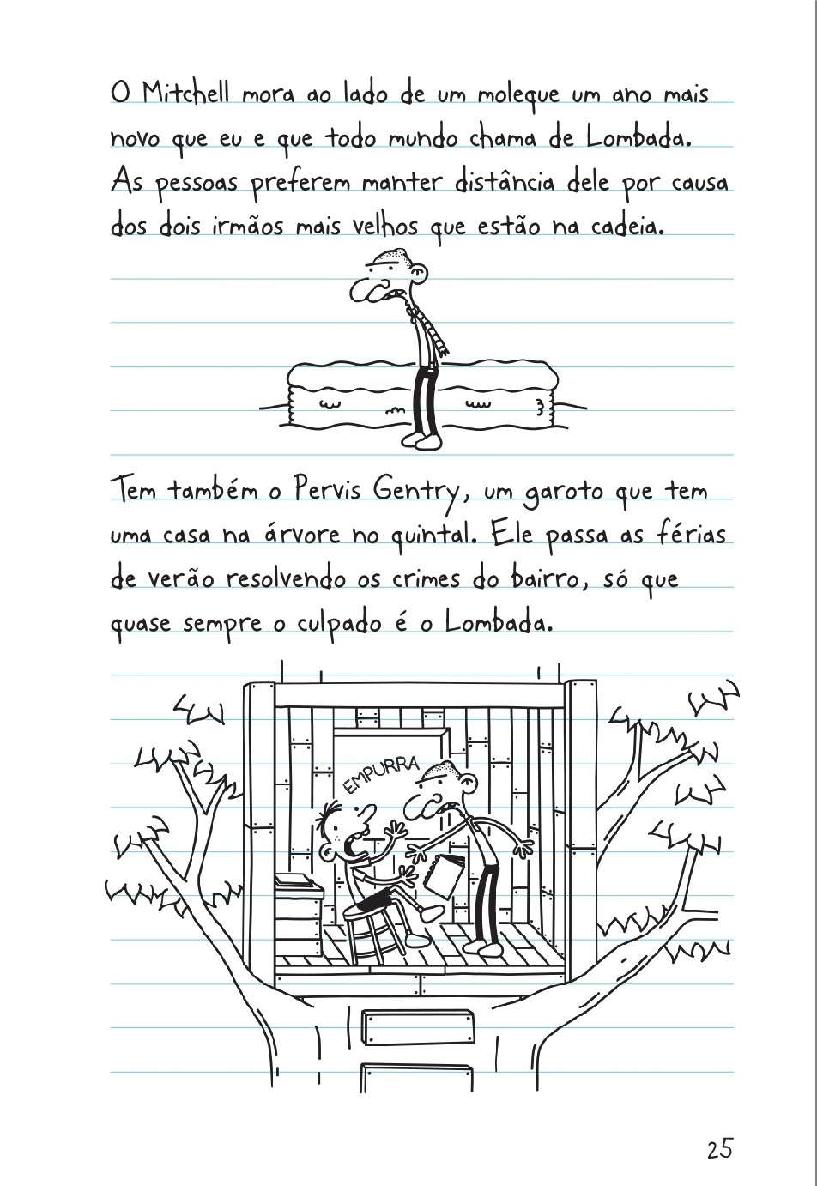 O Mitchell mora ao lado de um moleque um ano mais
novo que eu e que todo mundo chama de Lombada.
As pessoas preferem manter distância dele por causa
dos dois irmãos mais velhos que estão na cadeia.
Tem também o Pervis Gentry, um garoto que tem
uma casa na árvore no quintal. Ele passa as férias
de verão resolvendo os crimes do bairro, só que
quase sempre o culpado é o Lombada.
EMPURRA
25